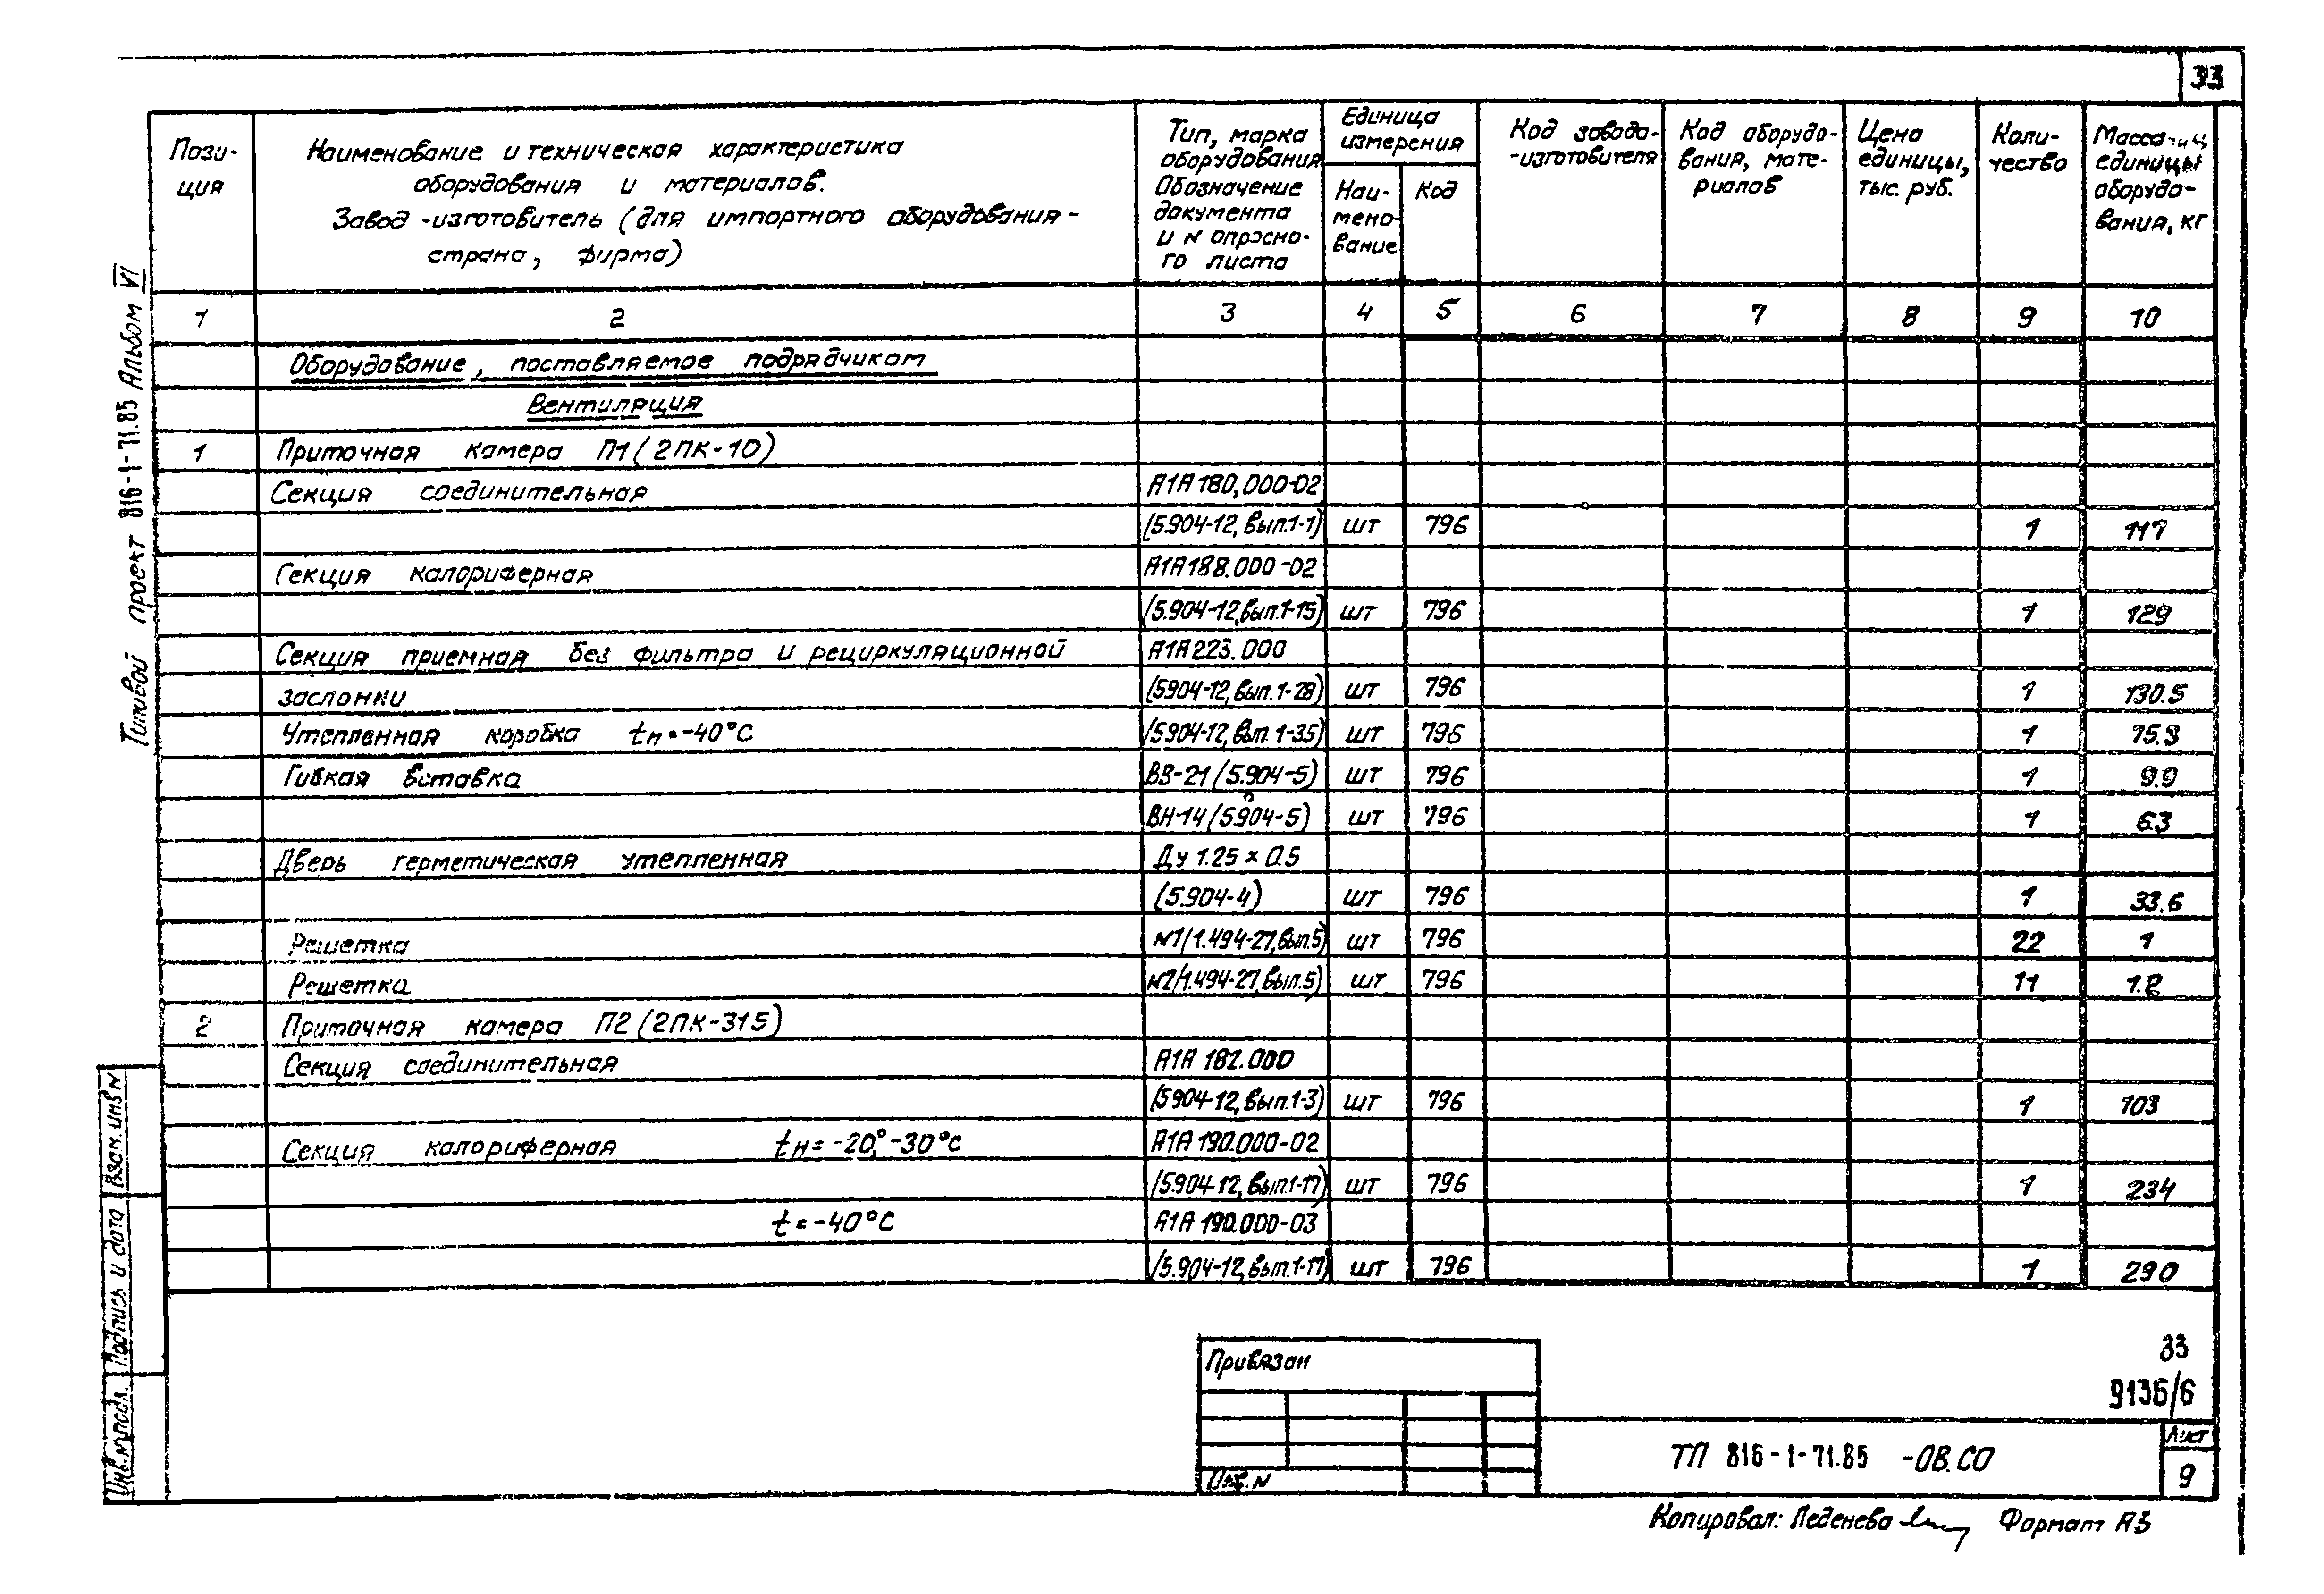 33
Пози-
ция
Наименование и техническая характеристика
оборудования и материалов.
Завод-изготовитель (для импортного оборудования-
страна, фирма)
Тип, марка
оборудования
Обозначение
документа
и № опросно-
го листа
Единица
измерения
Наи-
мено-
вание
Код
Код завода-
-изготовителя
Код оборудо-
вания, мате-
риалов
Цена
единицы,
тыс. руб.
Коли-
чество
Масса
единицы
оборудо-
вания, кг
1 2 3 4 5 6 7 8 9 10
Оборудование, поставляемое подрядчиком
Вентиляция
1 Приточная камера П1 (2ПК-10)
Секция соединительная А1А180.000-02
(5.904-12, вып.1-1) шт 796 1 117
Секция калориферная А1А188.000-02
(5.904-12, вып.1-15) шт 796 1 129
Секция приемная без фильтра и рециркуляционной А1А223.000
заслонки (5.904-12, вып.1-28) шт 796 1 130.5
Утепленная коробка tн=-40°С (5.904-12, вып. 1-35) шт 796 1 75.3
Гибкая вставка ВВ-21 (5.904-5) шт 796 1 9.9
ВН-14 (5.904-5) шт 796 1 6.3
Дверь герметическая утепленная Ду 1.25 х 0.5
(5.904-4) шт 796 1 33.6
Решетка №1 (1.494-27, вып.5) шт 796 22 1
Решетка №2 (1.494-27, вып.5) шт 796 11 1.2
2 Приточная камера П2 (2ПК-31.5)
Секция соединительная А1А 182.000
(5.904-12, вып.1-3) шт 796 1 103
Секция калориферная tн=-20°,-30°С А1А 190.000-02
(5.904-12, вып.1-17) шт 796 1 234
t=-40°С А1А 190.000-03
(5.904-12, вып.1-17) шт 796 1 290
Типовой проект 816-1-71.85 Альбом VI
Взам. инв №
Подпись и дата
Инв.№ подл.
Привязан
Инв. №
33
9136/6
ТП 816-1-71.85 -ОВ.СО
Лист
9
Копировал: Леденева
Формат А3